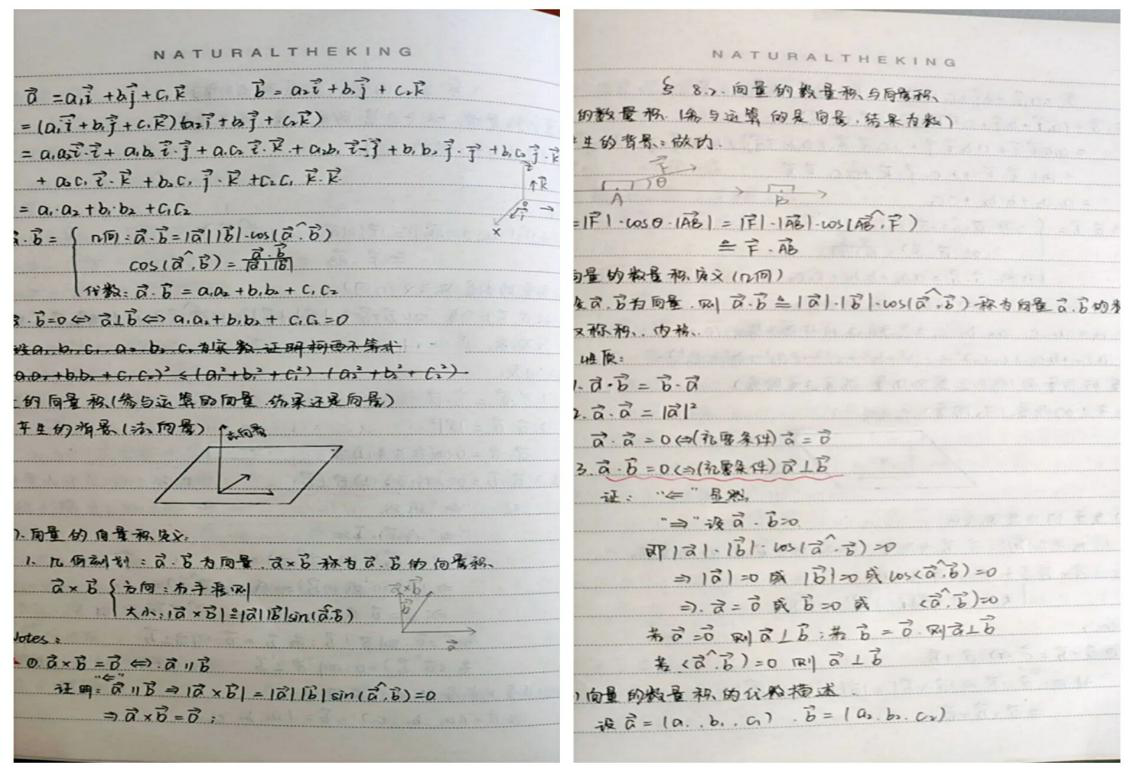 NATURALTHEKING
a⃗ = a₁i⃗ + b₁j⃗ + c₁k⃗  b⃗ = a₂i⃗ + b₂j⃗ + c₂k⃗
= (a₁i⃗ + b₁j⃗ + c₁k⃗)(a₂i⃗ + b₂j⃗ + c₂k⃗)
= a₁a₂i⃗·i⃗ + a₁b₂i⃗·j⃗ + a₁c₂i⃗·k⃗ + a₂b₁i⃗·j⃗ + b₁b₂j⃗·j⃗ + b₁c₂j⃗·k⃗
+ a₂c₁i⃗·k⃗ + b₂c₁j⃗·k⃗ + c₂c₁k⃗·k⃗
= a₁·a₂ + b₁·b₂ + c₁c₂
z
k⃗
i⃗
x
a⃗·b⃗ = { 几何: a⃗·b⃗ = |a⃗||b⃗|·cos(a⃗^b⃗)
cos(a⃗^,b⃗) = a⃗·b⃗/|a⃗||b⃗|
代数: a⃗·b⃗ = a₁a₂ + b₁b₂ + c₁c₂
·b⃗=0 ⇔ a⃗⊥b⃗ ⇔ a₁a₂ + b₁b₂ + c₁c₂ = 0
a₁,b₁,c₁,a₂,b₂,c₂为实数,证明柯西不等式
(a₁a₂+b₁b₂+c₁c₂)² ≤ (a₁²+b₁²+c₁²)·(a₂²+b₂²+c₂²)
的向量积(参与运算的向量,结果还是向量)
产生的背景(法向量)
法向量
).向量的向量积定义.
1. 几何刻划: a⃗,b⃗为向量,a⃗×b⃗称为a⃗,b⃗的向量积.
a⃗×b⃗ { 方向: 右手准则
大小: |a⃗×b⃗| ≜ |a⃗||b⃗|sin(a⃗^b⃗)
a⃗×b⃗
b⃗
a⃗
Notes:
①. a⃗×b⃗ = 0⃗ ⇔ a⃗∥b⃗
证明: "⇐" a⃗∥b⃗ ⇒ |a⃗×b⃗| = |a⃗||b⃗|sin(a⃗^,b⃗) = 0
⇒ a⃗×b⃗ = 0⃗;
NATURALTHEKING
§ 8.2.向量的数量积与向量积.
的数量积.(参与运算的是向量,结果为数)
产生的背景: 做功.
F⃗
θ
A
B
=|F⃗|·cosθ·|AB⃗| = |F⃗|·|AB⃗|·cos(AB⃗^,F⃗)
≜ F⃗·AB⃗
向量的数量积定义(几何)
a⃗,b⃗为向量,则 a⃗·b⃗ ≜ |a⃗|·|b⃗|·cos(a⃗^,b⃗)称为向量a⃗,b⃗的数
又称积,内积.
性质:
1. a⃗·b⃗ = b⃗·a⃗
2. a⃗·a⃗ = |a⃗|²
a⃗·a⃗ = 0 ⇔(充要条件) a⃗ = 0⃗
3. a⃗·b⃗ = 0 ⇔(充要条件) a⃗⊥b⃗
证: "⇐" 显然
"⇒" 设a⃗·b⃗=0
即|a⃗|·|b⃗|·cos(a⃗^,b⃗)=0
⇒ |a⃗|=0 或 |b⃗|=0 或cos<a⃗^,b⃗>=0
⇒ a⃗=0⃗ 或 b⃗=0 或 <a⃗^,b⃗>=0
若a⃗=0⃗ 则a⃗⊥b⃗; 若b⃗=0⃗,则a⃗⊥b⃗
若<a⃗^,b⃗>=0 则 a⃗⊥b⃗
)向量的数量积的代数描述
设a⃗=(a₁,b₁,c₁),b⃗=(a₂,b₂,c₂)